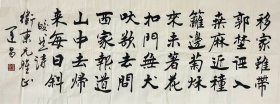 移家雖帶
郭野徑入
桑麻近種
籬邊菊秋
來未著花
扣門無犬
吠欲去問
西家報道
山中去歸
來每日斜